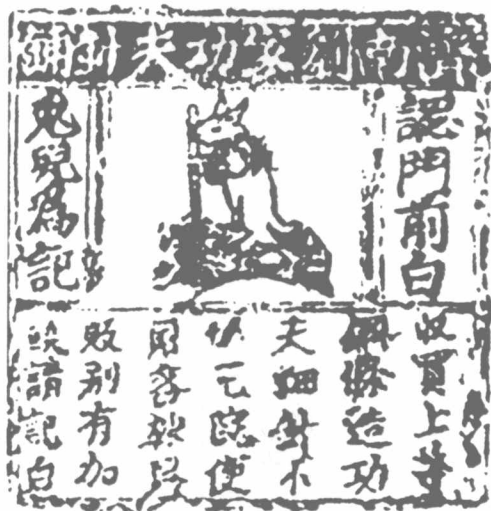 濟南劉家功夫針鋪
認門前白
兔兒爲記
收買上等
鋼條造功
夫細針不
宅院使
用客
販別有加
饒請記白